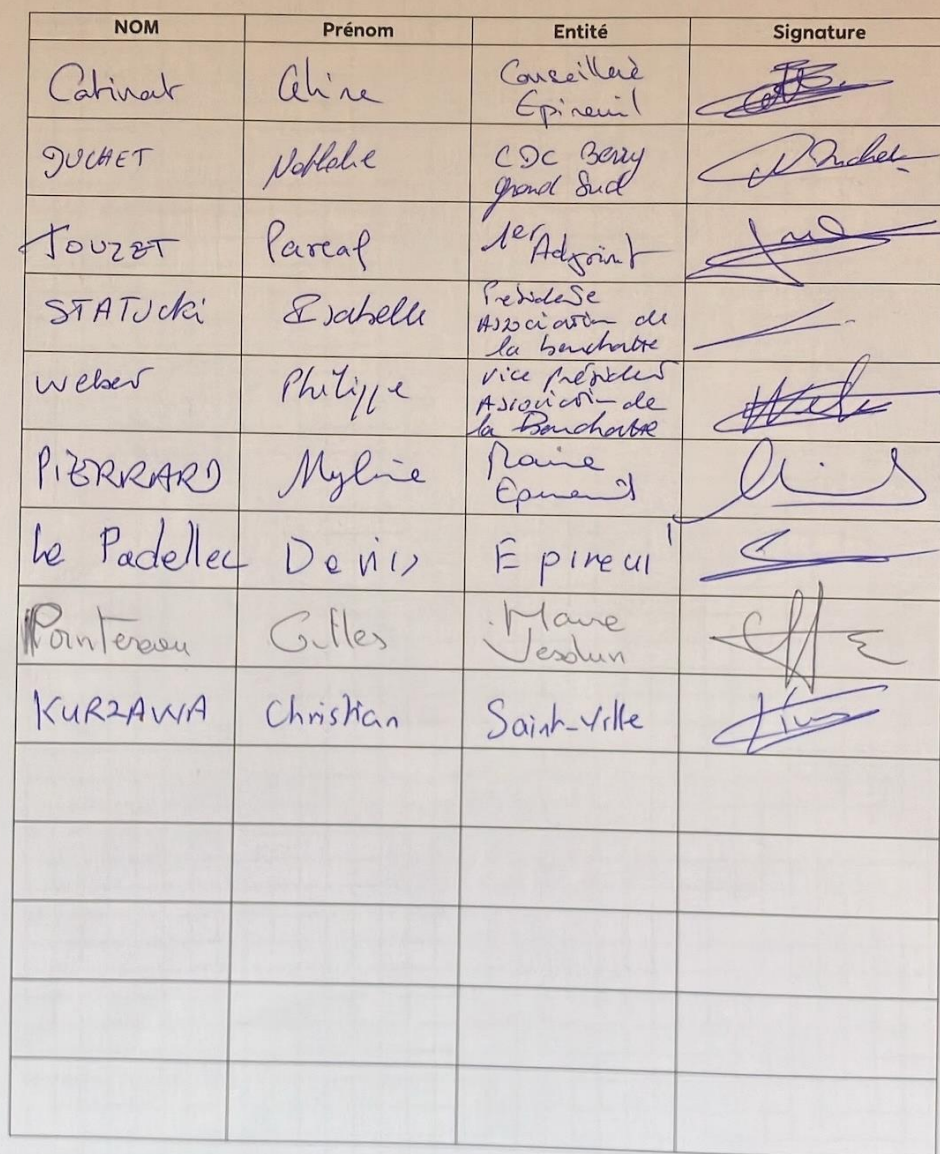 NOM Prénom Entité Signature
Catinat Céline Conseillère
Epineuil
DUCHET Nathalie CDC Berry
grand Sud
TOUZET Pascal 1er Adjoint
STATUCKi Isabelle Présidente
Association de
la bouchatte
Weber Philippe Vice président
Association de
la Bouchatte
PiERRARD Mylène Maire
Epineuil
Le Padellec Denis Epineuil
Pointereau Gilles Maire
Vesdun
KURZAWA Christian Saint-Ville